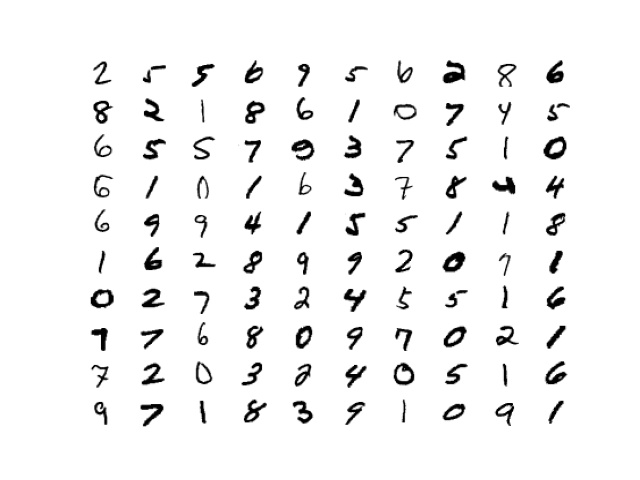 2 5 5 6 9 5 6 2 8 6
8 2 1 8 6 1 0 7 4 5
6 5 5 7 9 3 7 5 1 0
6 1 0 1 6 3 7 8 4 4
6 9 9 4 1 5 5 1 1 8
1 6 2 8 9 9 2 0 7 1
0 2 7 3 2 4 5 5 1 6
7 7 6 8 0 9 7 0 2 1
7 2 0 3 2 4 0 5 1 6
9 7 1 8 3 9 1 0 9 1